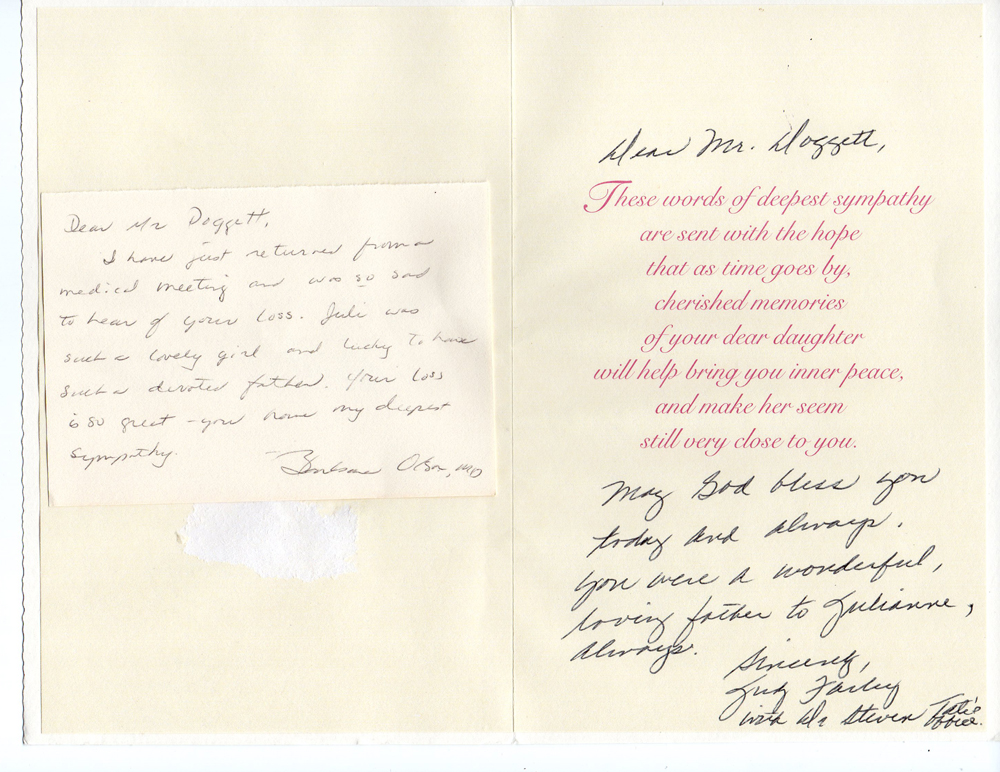 Dear Mr Doggett,
I have just returned from a
medical meeting and was so sad
to hear of your loss. Juli was
such a lovely girl and lucky to have
such a devoted father. Your loss
is so great - you have my deepest
sympathy.
Barbara Olson, MD
Dear Mr. Doggett,
These words of deepest sympathy
are sent with the hope
that as time goes by,
cherished memories
of your dear daughter
will help bring you inner peace,
and make her seem
still very close to you.
May God bless you
today and always.
You were a wonderful,
loving father to Julianne,
always.
Sincerely,
Judy Farley
with Dr Steven
office.